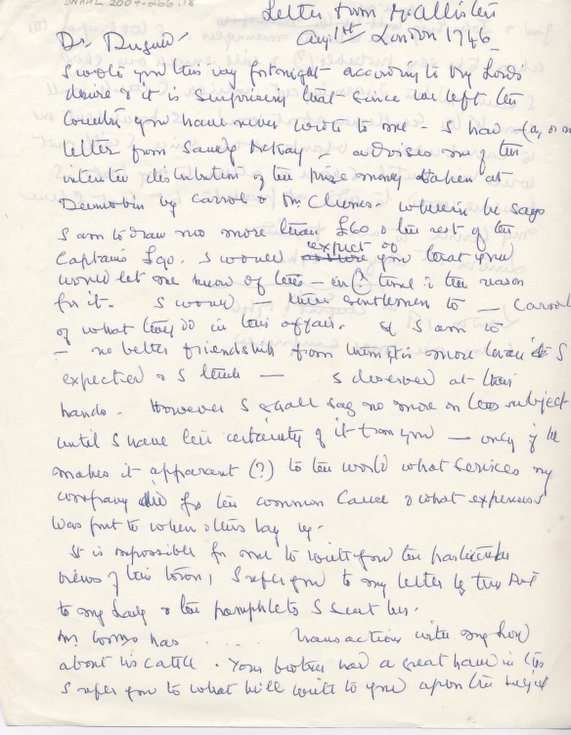 UNHHL 2004-266.18
Letter from McAllister
Augt 1st London 1746
Dr. Dugald
I wrote you this day fortnight according to My Lords
desire & it is surprising that since we left the
Country you have never wrote to me - I had (a, or
letter from Sandy McKay - advises me of the
intended distribution of the prize money taken at
by & Mr. - wherein he says
I am to draw no more than £60 & the rest of the
Captains £90. I would expect of you that you
would let me know of this - in (?) time & the reason
for it. I would - these gentlemen to -
of what they do in this affair. If I am to
- no better friendship from them it is more than I
expected & I think - I deserved at their
hands. However I shall say no more on this subject
until I have the certainty of it from you - only I'll
makes it apparent (?) to the world what services my
company did for the common Cause & what expenses
was put to when others lay by -
It is impossible for me to write you the particular
news of this town, I refer you to my letter by this Post
to my Lady & the pamphlets I sent her.
Mr. has .... transactions with my Lord
about his cattle. Your brother had a great hand in this
I refer you to what he'll write to you upon the subject